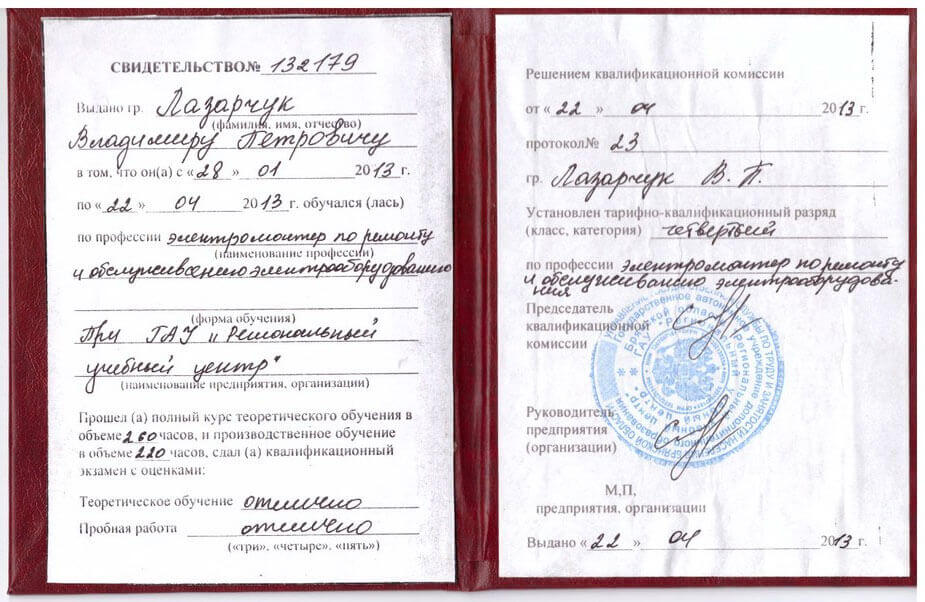 СВИДЕТЕЛЬСТВО№ 132179
Выдано гр. Лазарчук
(фамилия, имя, отчество)
Владимиру Петровичу
в том, что он(а) с « 28 » 01 2013 г.
по « 22 » 04 2013 г. обучался (лась)
по профессии электромонтер по ремонту
(наименование профессии)
и обслуживанию электрооборудования
(форма обучения)
При ГАУ "Региональный
учебный центр"
(наименование предприятия, организации)
Прошел (а) полный курс теоретического обучения в
объеме 260 часов, и производственное обучение
в объеме 220 часов, сдал (а) квалификационный
экзамен с оценками:
Теоретическое обучение отлично
Пробная работа отлично
(«три», «четыре», «пять»)
Решением квалификационной комиссии
от « 22 » 04 2013 г.
протокол№ 23
гр. Лазарчук В. П.
Установлен тарифно-квалификационный разряд
(класс, категория) четвертый
по профессии электромонтер по ремонту
и обслуживанию электрооборудова-
ния
Председатель
квалификационной
комиссии
Руководитель
предприятия
(организации)
М,П,
предприятия, организации
Выдано « 22 » 04 2013 г.